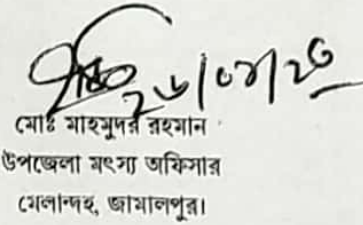 ২৬/০৮/২৩
মোঃ মাহমুদুর রহমান
উপজেলা মৎস্য অফিসার
মেলান্দহ, জামালপুর।